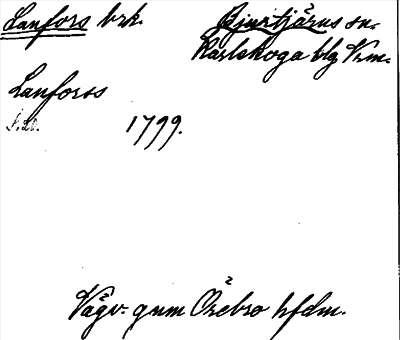 Lanfors brk. Bjurtjärns sn.
Karlskoga blg Vrm.
Lanforss
1799.
Vägv. gnm Örebro hfdm.